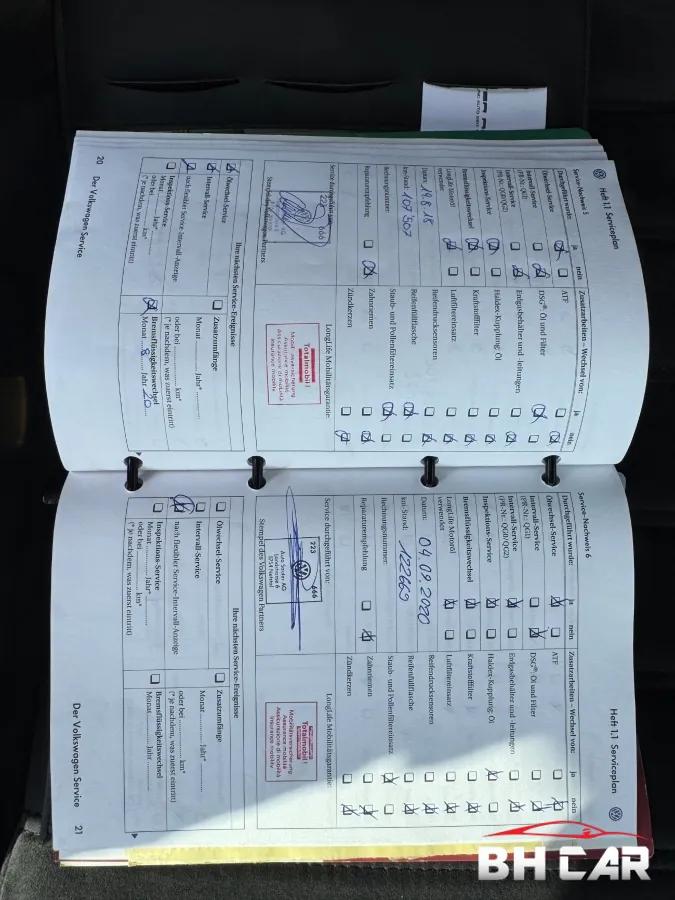 Heft 1.1 Serviceplan
Service-Nachweis 5
Durchgeführt wurde: ja nein
Ölwechsel-Service
Intervall-Service
(PR-Nr. QG1)
Intervall-Service
(PR-Nr. QG0/QG2)
Inspektions-Service
Bremsflüssigkeitswechsel
LongLife Motoröl
verwendet
Datum: 14.8.18
km-Stand: 107'507
Rechnungsnummer:
Reparaturempfehlung
Zusatzarbeiten – Wechsel von: ja nein
ATF
DSG®: Öl und Filter
Erdgasbehälter und -leitungen
Haldex-Kupplung: Öl
Kraftstofffilter
Luftfiltereinsatz
Reifendrucksensoren
Reifenfüllflasche
Staub- und Pollenfiltereinsatz
Zahnriemen
Zündkerzen
Service durchgeführt von:
223 666
Stempel des Volkswagen Partners
LongLife Mobilitätsgarantie:
Totalmobil!
Mobilitätsversicherung
Assurance mobilité
Assicurazione di mobilità
Insurance mobility
Ihre nächsten Service-Ereignisse
Ölwechsel-Service
Intervall-Service
nach flexibler Service-Intervall-Anzeige
Inspektions-Service
Monat Jahr*
oder bei km*
(* je nachdem, was zuerst eintritt)
Zusatzumfänge
Monat Jahr*
oder bei km*
(* je nachdem, was zuerst eintritt)
Bremsflüssigkeitswechsel
Monat 8 Jahr 20
20 Der Volkswagen Service
Heft 1.1 Serviceplan
Service-Nachweis 6
Durchgeführt wurde: ja nein
Ölwechsel-Service
Intervall-Service
(PR-Nr. QG1)
Intervall-Service
(PR-Nr. QG0/QG2)
Inspektions-Service
Bremsflüssigkeitswechsel
LongLife Motoröl
verwendet
Datum: 04.09.2020
km-Stand: 122669
Rechnungsnummer:
Reparaturempfehlung
Zusatzarbeiten – Wechsel von: ja nein
ATF
DSG®: Öl und Filter
Erdgasbehälter und -leitungen
Haldex-Kupplung: Öl
Kraftstofffilter
Luftfiltereinsatz
Reifendrucksensoren
Reifenfüllflasche
Staub- und Pollenfiltereinsatz
Zahnriemen
Zündkerzen
Service durchgeführt von:
223 666
Stempel des Volkswagen Partners
LongLife Mobilitätsgarantie:
Totalmobil!
Mobilitätsversicherung
Assurance mobilité
Assicurazione di mobilità
Insurance mobility
Ihre nächsten Service-Ereignisse
Ölwechsel-Service
Intervall-Service
nach flexibler Service-Intervall-Anzeige
Inspektions-Service
Monat Jahr*
oder bei km*
(* je nachdem, was zuerst eintritt)
Zusatzumfänge
Monat Jahr*
oder bei km*
(* je nachdem, was zuerst eintritt)
Bremsflüssigkeitswechsel
Monat Jahr
Der Volkswagen Service 21
BH CAR